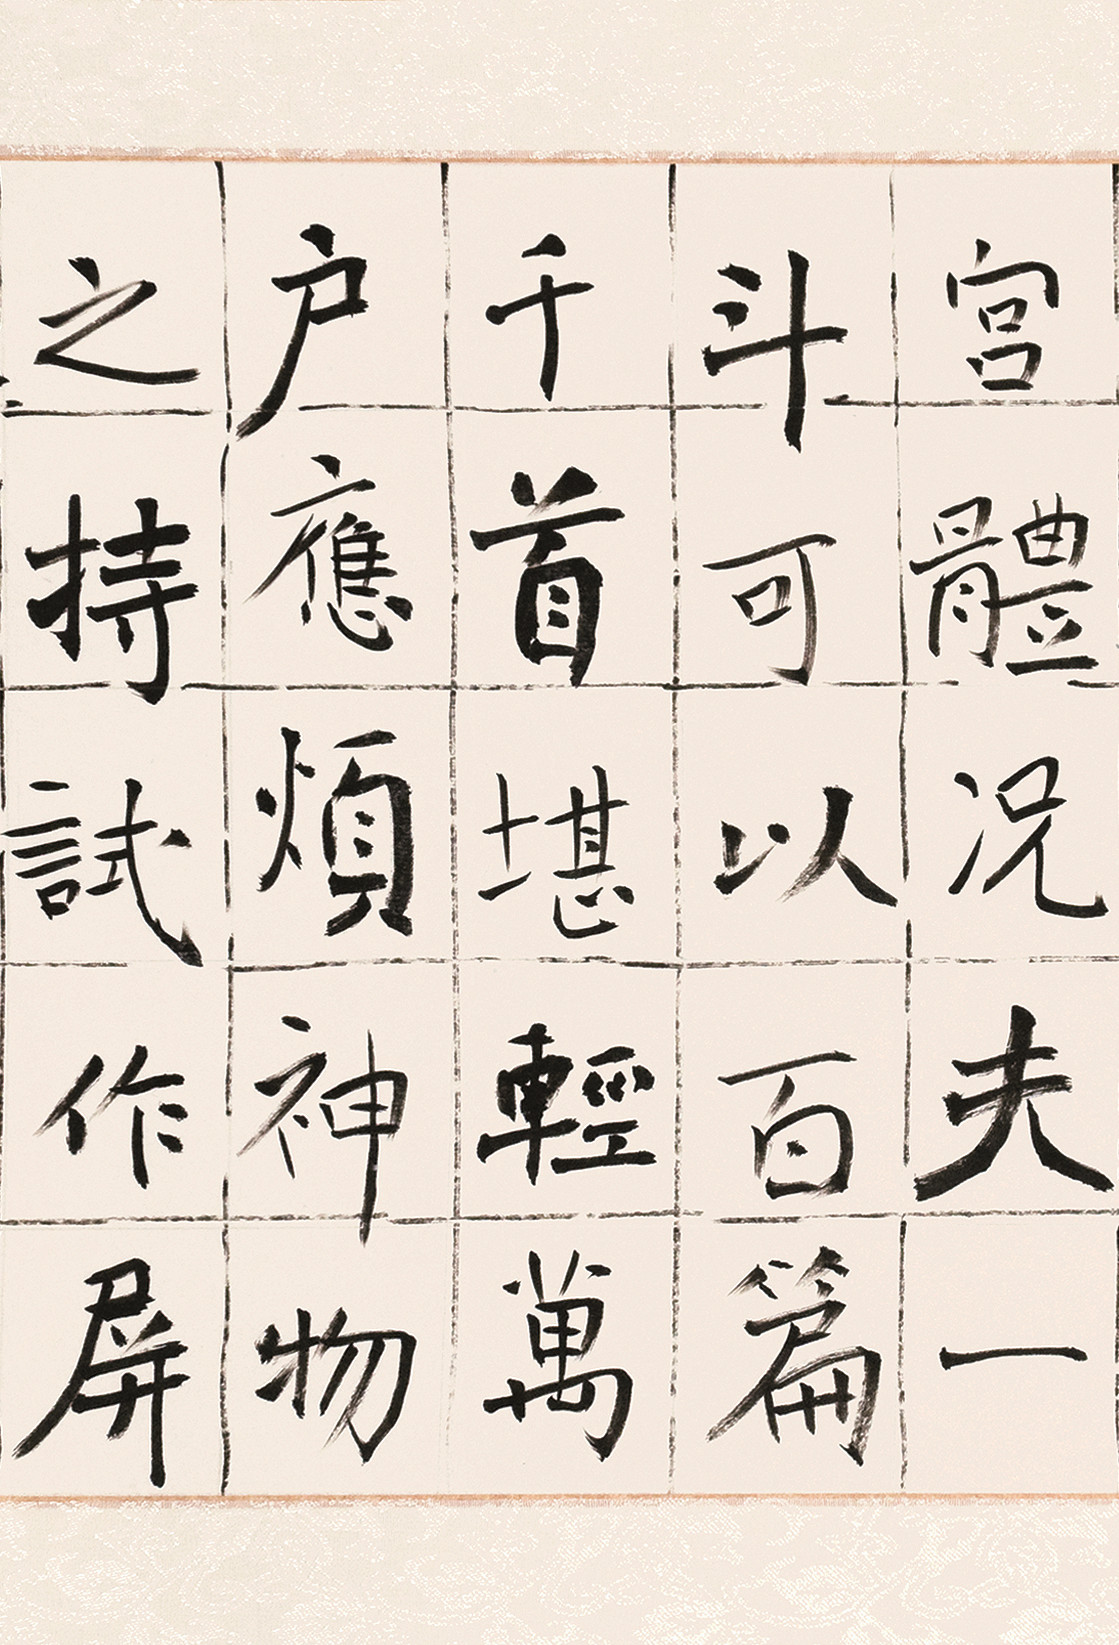 宫體况夫一
斗可以百篇
千首堪輕萬
户應煩神物
之持試作屏